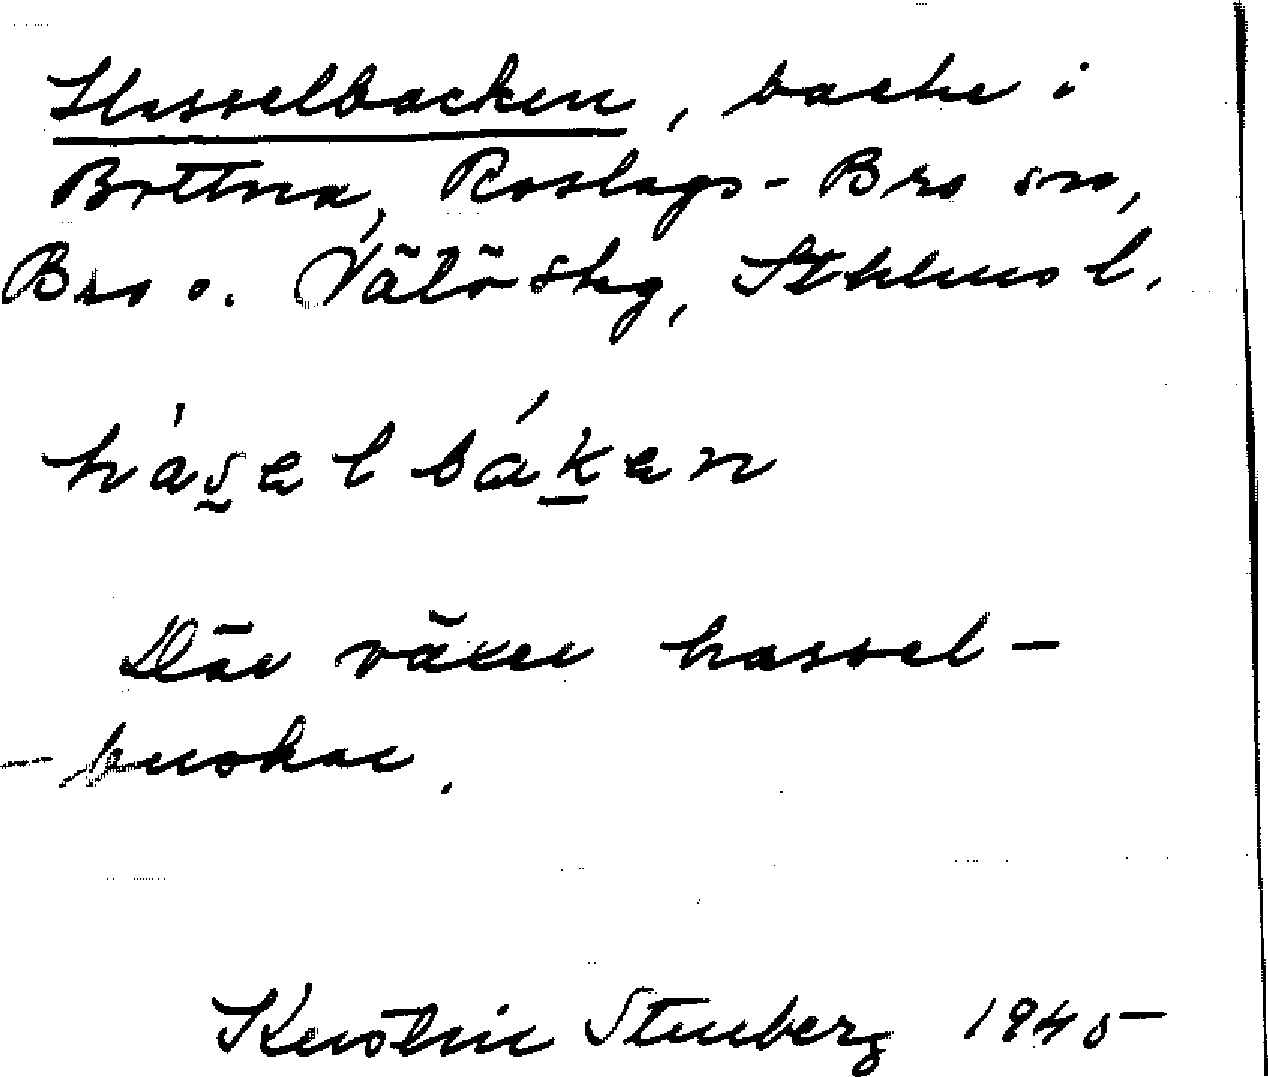 Hasselbacken, backe i
Bottna, Roslags-Bro sn,
Bro o. Vätö skg, Sthlms l.
hásel báken
Där växer hassel-
-buskar.
Kerstin Stenberg 1945